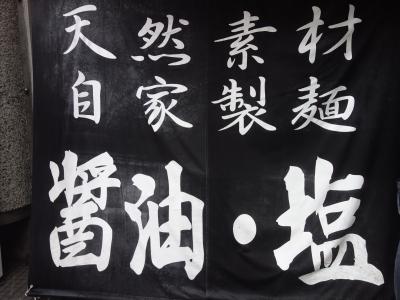 天然素材
自家製麺
醤油・塩